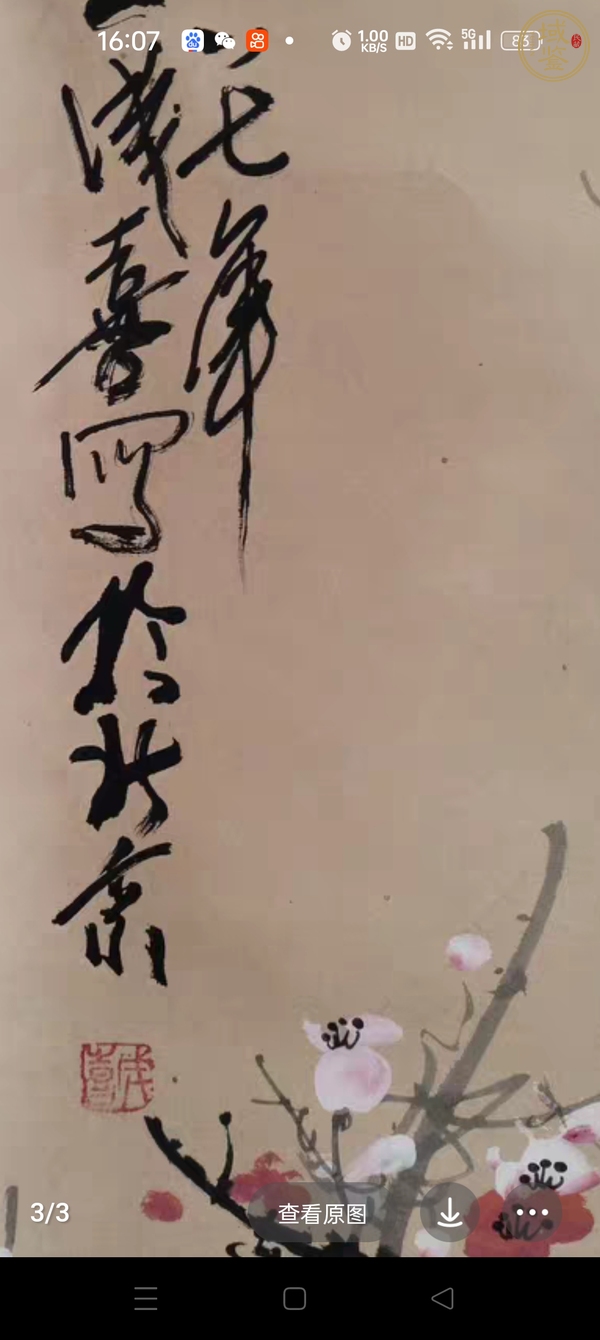 16:07
1.00 KB/S
HD
5G
86
七年
誠喜寫於北京
3/3
查看原图